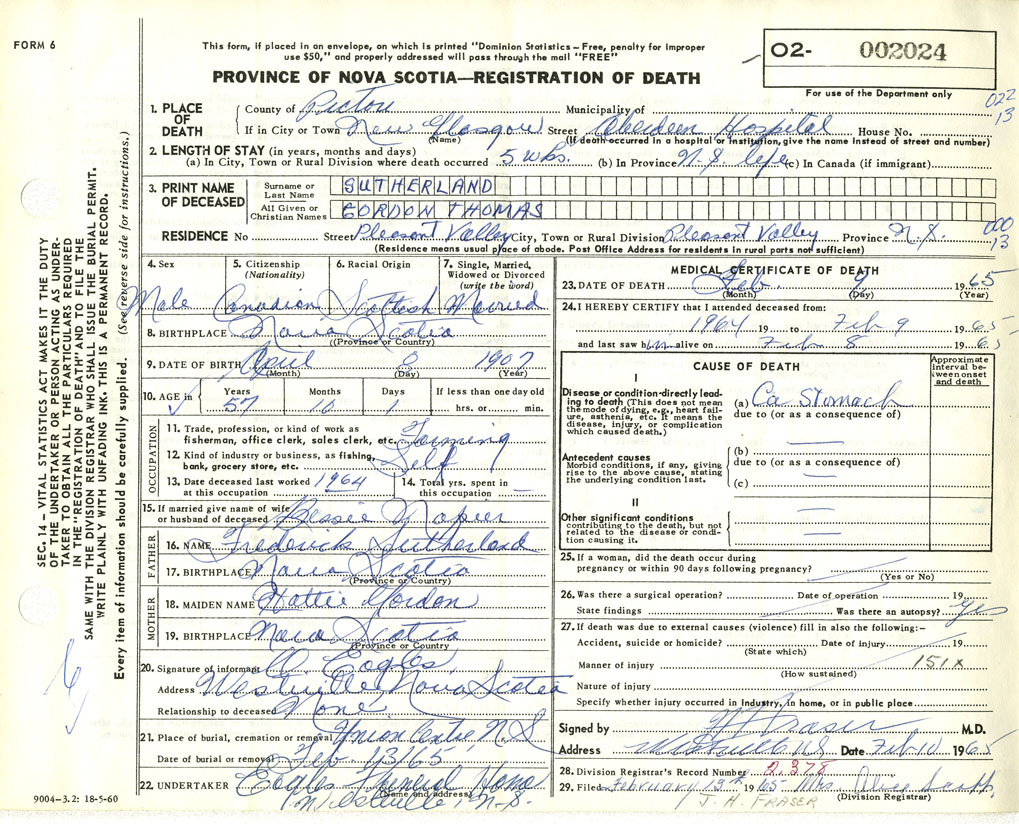 FORM 6
This form, if placed in an envelope, on which is printed "Dominion Statistics – Free, penalty for improper
use $50," and properly addressed will pass through the mail "FREE"
PROVINCE OF NOVA SCOTIA—REGISTRATION OF DEATH
O2- 002024
For use of the Department only
022
13
1. PLACE OF DEATH
County of Pictou Municipality of
If in City or Town New Glasgow Street Aberdeen Hospital House No.
(Name) (If death occurred in a hospital or institution, give the name instead of street and number)
2. LENGTH OF STAY (in years, months and days)
(a) In City, Town or Rural Division where death occurred 5 wks. (b) In Province N.S. life (c) In Canada (if immigrant)
3. PRINT NAME OF DECEASED
Surname or Last Name SUTHERLAND
All Given or Christian Names GORDON THOMAS
000
13
RESIDENCE No Street Pleasant Valley City, Town or Rural Division Pleasant Valley Province N.S.
(Residence means usual place of abode. Post Office Address for residents in rural parts not sufficient)
4. Sex 5. Citizenship (Nationality) 6. Racial Origin 7. Single, Married, Widowed or Divorced (write the word)
Male Canadian Scottish Married
8. BIRTHPLACE Nova Scotia
(Province or Country)
9. DATE OF BIRTH April 8 1907
(Month) (Day) (Year)
10. AGE in Years Months Days If less than one day old
57 10 1 hrs. or min.
OCCUPATION
11. Trade, profession, or kind of work as
fisherman, office clerk, sales clerk, etc. Farming
12. Kind of industry or business, as fishing,
bank, grocery store, etc. Self
13. Date deceased last worked at this occupation 1964
14. Total yrs. spent in this occupation —
15. If married give name of wife
or husband of deceased Bessie Napier
FATHER
16. NAME Frederick Sutherland
17. BIRTHPLACE Nova Scotia
(Province or Country)
MOTHER
18. MAIDEN NAME Hattie Gordon
19. BIRTHPLACE Nova Scotia
(Province or Country)
20. Signature of informant Eagles
Address Westville Nova Scotia
Relationship to deceased None
21. Place of burial, cremation or removal Union Centre, N.S
Date of burial or removal Feb. 13/65
22. UNDERTAKER Eagles Funeral Home
(Name and address)
Westville, N.S.
MEDICAL CERTIFICATE OF DEATH
23. DATE OF DEATH Feb 9 1965
(Month) (Day) (Year)
24. I HEREBY CERTIFY that I attended deceased from:
1964 19 to Feb 9 1965
and last saw him alive on Feb 8 1965
CAUSE OF DEATH
Approximate interval between onset and death
I
Disease or condition directly leading to death (This does not mean the mode of dying, e.g., heart failure, asthenia, etc. It means the disease, injury, or complication which caused death.)
(a) Ca Stomach
due to (or as a consequence of)
Antecedent causes
Morbid conditions, if any, giving rise to the above cause, stating the underlying condition last.
(b)
due to (or as a consequence of)
(c)
II
Other significant conditions
contributing to the death, but not related to the disease or condition causing it.
25. If a woman, did the death occur during
pregnancy or within 90 days following pregnancy?
(Yes or No)
26. Was there a surgical operation? Date of operation 19
State findings Was there an autopsy? Yes
27. If death was due to external causes (violence) fill in also the following:–
Accident, suicide or homicide? Date of injury 19
(State which)
Manner of injury 151X
(How sustained)
Nature of injury
Specify whether injury occurred in industry, in home, or in public place
Signed by Fraser M.D.
Address Westville NS Date Feb 10 1965
28. Division Registrar's Record Number 2,378
29. Filed February 19th 1965 Mrs
(Division Registrar)
J. H. FRASER
SEC. 14 – VITAL STATISTICS ACT MAKES IT THE DUTY
OF THE UNDERTAKER OR PERSON ACTING AS UNDER-
TAKER TO OBTAIN ALL THE PARTICULARS REQUIRED
IN THE "REGISTRATION OF DEATH" AND TO FILE THE
SAME WITH THE DIVISION REGISTRAR WHO SHALL ISSUE THE BURIAL PERMIT.
WRITE PLAINLY WITH UNFADING INK. THIS IS A PERMANENT RECORD.
Every item of information should be carefully supplied. (See reverse side for instructions.)
9004-3.2: 18-5-60